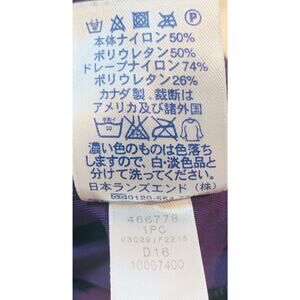 本体ナイロン50%
ポリウレタン50%
ドレープナイロン74%
ポリウレタン26%
カナダ製、裁断は
アメリカ及び諸外国
濃い色のものは色落ち
しますので、白・淡色品と
分けて洗ってください。
日本ランズエンド(株)
0120-554-
466778
1PC
V3029/F2215
D16
10007400